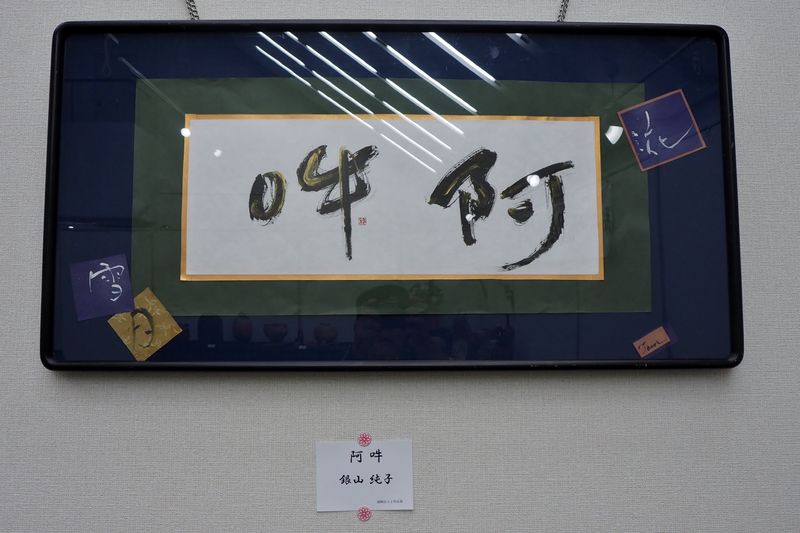 阿吽
花
雪
月
阿 吽
銀山 純子